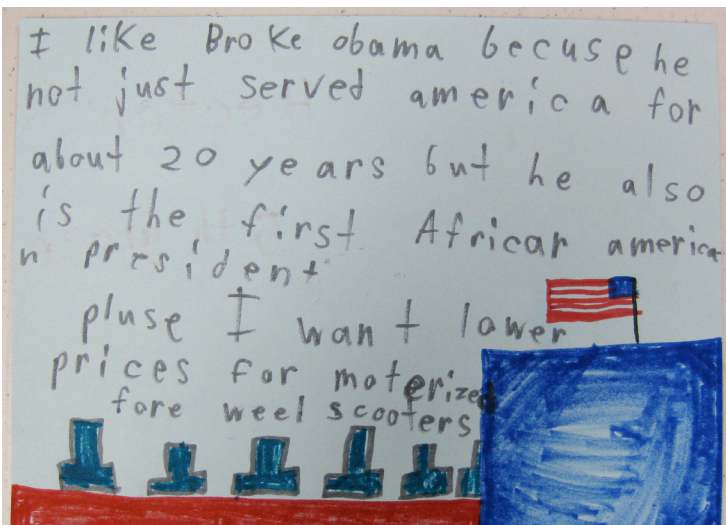 I like Broke obama becuse he
not just served america for
about 20 years but he also
is the first African america
n president
pluse I want lower
prices for moterized
fore weel scooters